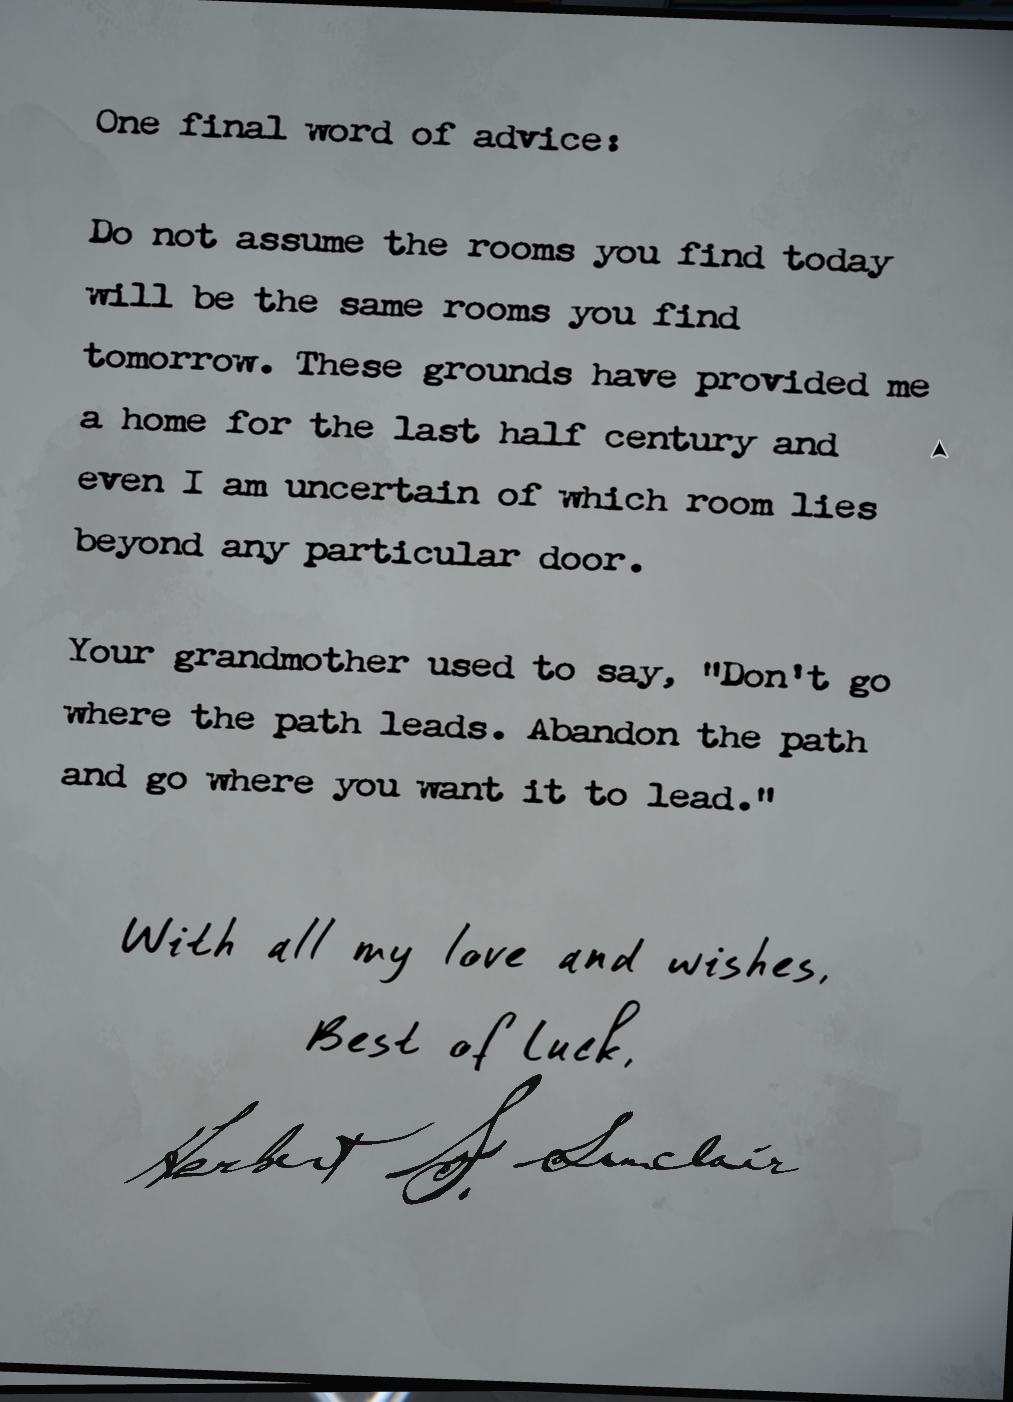 One final word of advice:
Do not assume the rooms you find today
will be the same rooms you find
tomorrow. These grounds have provided me
a home for the last half century and
even I am uncertain of which room lies
beyond any particular door.
Your grandmother used to say, "Don't go
where the path leads. Abandon the path
and go where you want it to lead."
With all my love and wishes,
Best of luck,
Herbert S. Sinclair